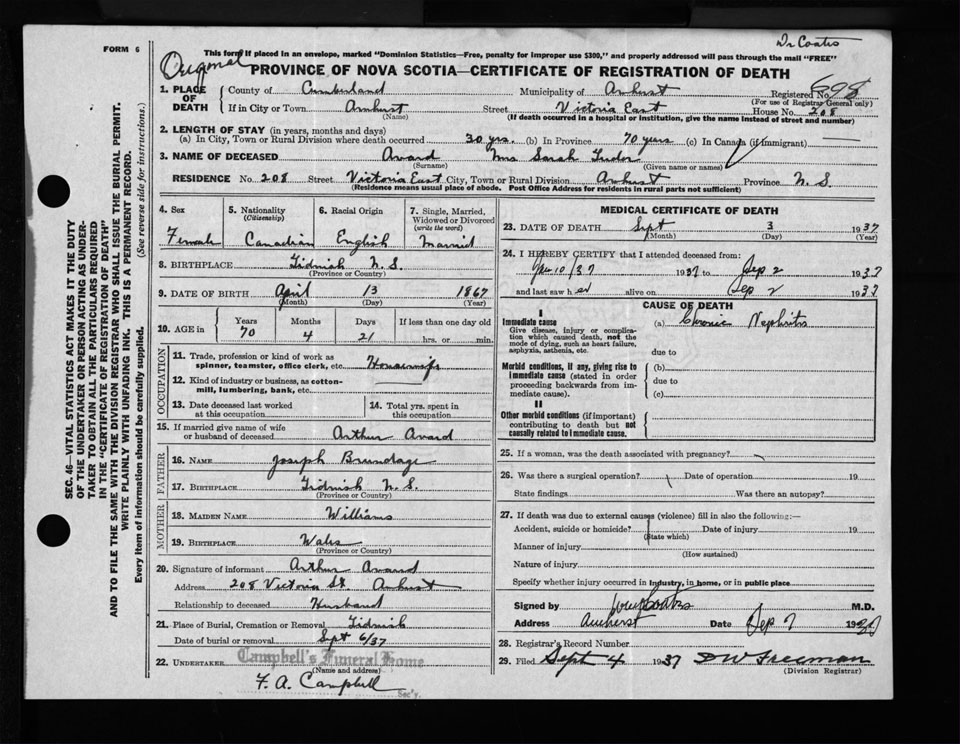 Dr Coates
FORM 6
This form if placed in an envelope, marked "Dominion Statistics—Free, penalty for improper use $300," and properly addressed will pass through the mail "FREE"
Original
PROVINCE OF NOVA SCOTIA—CERTIFICATE OF REGISTRATION OF DEATH
1. PLACE OF DEATH County of Cumberland Municipality of Amherst Registered No. 698
(For use of Registrar General only)
If in City or Town Amherst Street Victoria East House No. 208
(Name) (If death occurred in a hospital or institution, give the name instead of street and number)
2. LENGTH OF STAY (in years, months and days)
(a) In City, Town or Rural Division where death occurred 30 yrs. (b) In Province 70 years (c) In Canada (if immigrant)
3. NAME OF DECEASED Avard Mrs Sarah Tudor
(Surname) (Given name or names)
RESIDENCE No. 208 Street Victoria East City, Town or Rural Division Amherst Province N. S.
(Residence means usual place of abode. Post Office Address for residents in rural parts not sufficient)
4. Sex 5. Nationality (Citizenship) 6. Racial Origin 7. Single, Married, Widowed or Divorced (write the word)
Female Canadian English Married
8. BIRTHPLACE Tidnish N. S.
(Province or Country)
9. DATE OF BIRTH April 13 1867
(Month) (Day) (Year)
10. AGE in Years Months Days If less than one day old
70 4 21 hrs. or min.
OCCUPATION
11. Trade, profession or kind of work as spinner, teamster, office clerk, etc. Housewife
12. Kind of industry or business, as cotton-mill, lumbering, bank, etc.
13. Date deceased last worked at this occupation
14. Total yrs. spent in this occupation
15. If married give name of wife or husband of deceased Arthur Avard
FATHER
16. NAME Joseph Brundage
17. BIRTHPLACE Tidnish N. S.
(Province or Country)
MOTHER
18. MAIDEN NAME Williams
19. BIRTHPLACE Wales
(Province or Country)
20. Signature of informant Arthur Avard
Address 208 Victoria St. Amherst
Relationship to deceased Husband
21. Place of Burial, Cremation or Removal Tidnish
Date of burial or removal Sept 6/37
22. UNDERTAKER Campbell's Funeral Home
(Name and address)
F. A. Campbell
Sec'y.
MEDICAL CERTIFICATE OF DEATH
23. DATE OF DEATH Sept 3 1937
(Month) (Day) (Year)
24. I HEREBY CERTIFY that I attended deceased from:
10/37 1937 to Sep 2 1937
and last saw her alive on Sep 2 1937
CAUSE OF DEATH
I
Immediate cause (a) Chronic Nephritis
Give disease, injury or complication which caused death, not the mode of dying, such as heart failure, asphyxia, asthenia, etc.
due to
Morbid conditions, if any, giving rise to immediate cause (stated in order proceeding backwards from immediate cause).
(b)
due to
(c)
II
Other morbid conditions (if important) contributing to death but not causally related to immediate cause.
25. If a woman, was the death associated with pregnancy?
26. Was there a surgical operation? Date of operation 19
State findings Was there an autopsy?
27. If death was due to external causes (violence) fill in also the following:—
Accident, suicide or homicide? Date of injury 19
(State which)
Manner of injury
(How sustained)
Nature of injury
Specify whether injury occurred in industry, in home, or in public place
Signed by Coates M.D.
Address Amherst Date Sep 7 1937
28. Registrar's Record Number
29. Filed Sept 4 1937 DW Freeman
(Division Registrar)
SEC. 46—VITAL STATISTICS ACT MAKES IT THE DUTY
OF THE UNDERTAKER OR PERSON ACTING AS UNDER-
TAKER TO OBTAIN ALL THE PARTICULARS REQUIRED
IN THE "CERTIFICATE OF REGISTRATION OF DEATH"
AND TO FILE THE SAME WITH THE DIVISION REGISTRAR WHO SHALL ISSUE THE BURIAL PERMIT.
WRITE PLAINLY WITH UNFADING INK. THIS IS A PERMANENT RECORD.
Every item of information should be carefully supplied. (See reverse side for instructions.)